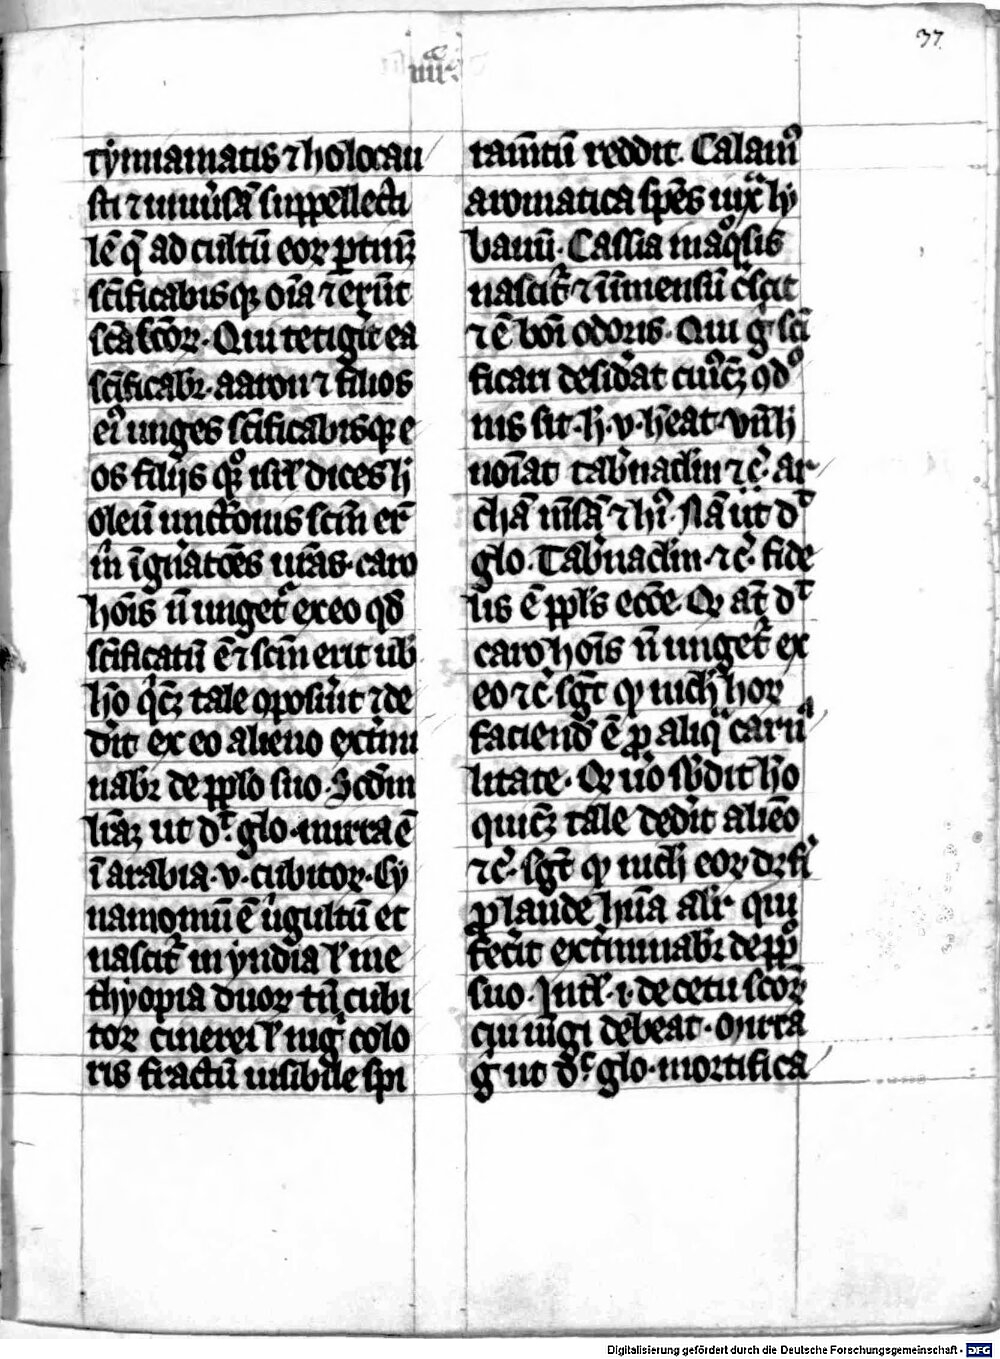 37
iiii
tymiamatis ⁊ holocau
sti ⁊ uniu̾sā suppellecti
lē q̄ ad cultū eoꝝ ꝑtinꝫ
scīficabisqꝫ oīa ⁊ erūt
scā scōꝝ. Qui tetigīt ea
scīficabr̄. aaron ⁊ filios
eiꝰ unges scīficabisqꝫ e
os filijs qꝫ isrl̄ dices h̄
oleū unctōnis scm̄ er̄
m̄ ī gn̄atōes ur̄as. caro
hoīs n̄ unget̄ ex eo qd̄
scīficatū ē ⁊ scm̄ erit uob̄
hō qͥcꝫ tale ꝯposūit ⁊ de
dīt ex eo alieno extmi
nabr̄ de ppl̄o suo. Scdm̄
līaꝫ ut dr̄. glo. mirra ē
ī arabia. v. cubitoꝝ. Cy
namomū ē u̾gultū et
nascit̄ in yndia l̄ in e
thyopia duoꝝ tm̄ cubi
toꝝ cinerei l̄ nigͥ colo
ris fractū uisibile spi
ramt̄ū reddit. Calamꝰ
aromatica spēs iux̄ ly
banū. Cassia in aqͦsis
nascit̄ ⁊ īmensū c̄scit
⁊ ē boī odoris. Qui gͦ scī
ficari desid̾at cuiꝰcꝫ ordi
nis sit. h̄. v. hēat. vn̄ h̄
noīat tab̾nac̄lm ⁊ c̄. ar
chā m̄sā ⁊ hͥ. Nā ut dr̄
glo. Tab̾nac̄lm. ⁊ c̄. fide
lis ē ppl̄s eccē. Qꝫ at̄ dr̄
caro hoīs n̄ unget̄ ex
eo ⁊ c̄ sgͭ qꝫ nich̄ hoꝝ
faciend̄ ē ꝓ aliqͣ carna
litate. Qꝫ u̾o sb̄dit hō
quicꝫ tale ded̾it aliēo
⁊ c̄. sgͭ qꝫ nich̄ eoꝝ dꝫ fi̾
ꝓ laude hūa alr̄ qui
fec̾it ext̾minabr̄ de ppl̄o
suo. Intl̄. i. de cetu scōꝝ
cū iūgi debeat. Mirra
gͦ ut dr̄ glo. mortifica
Digitalisierung gefördert durch die Deutsche Forschungsgemeinschaft - DFG